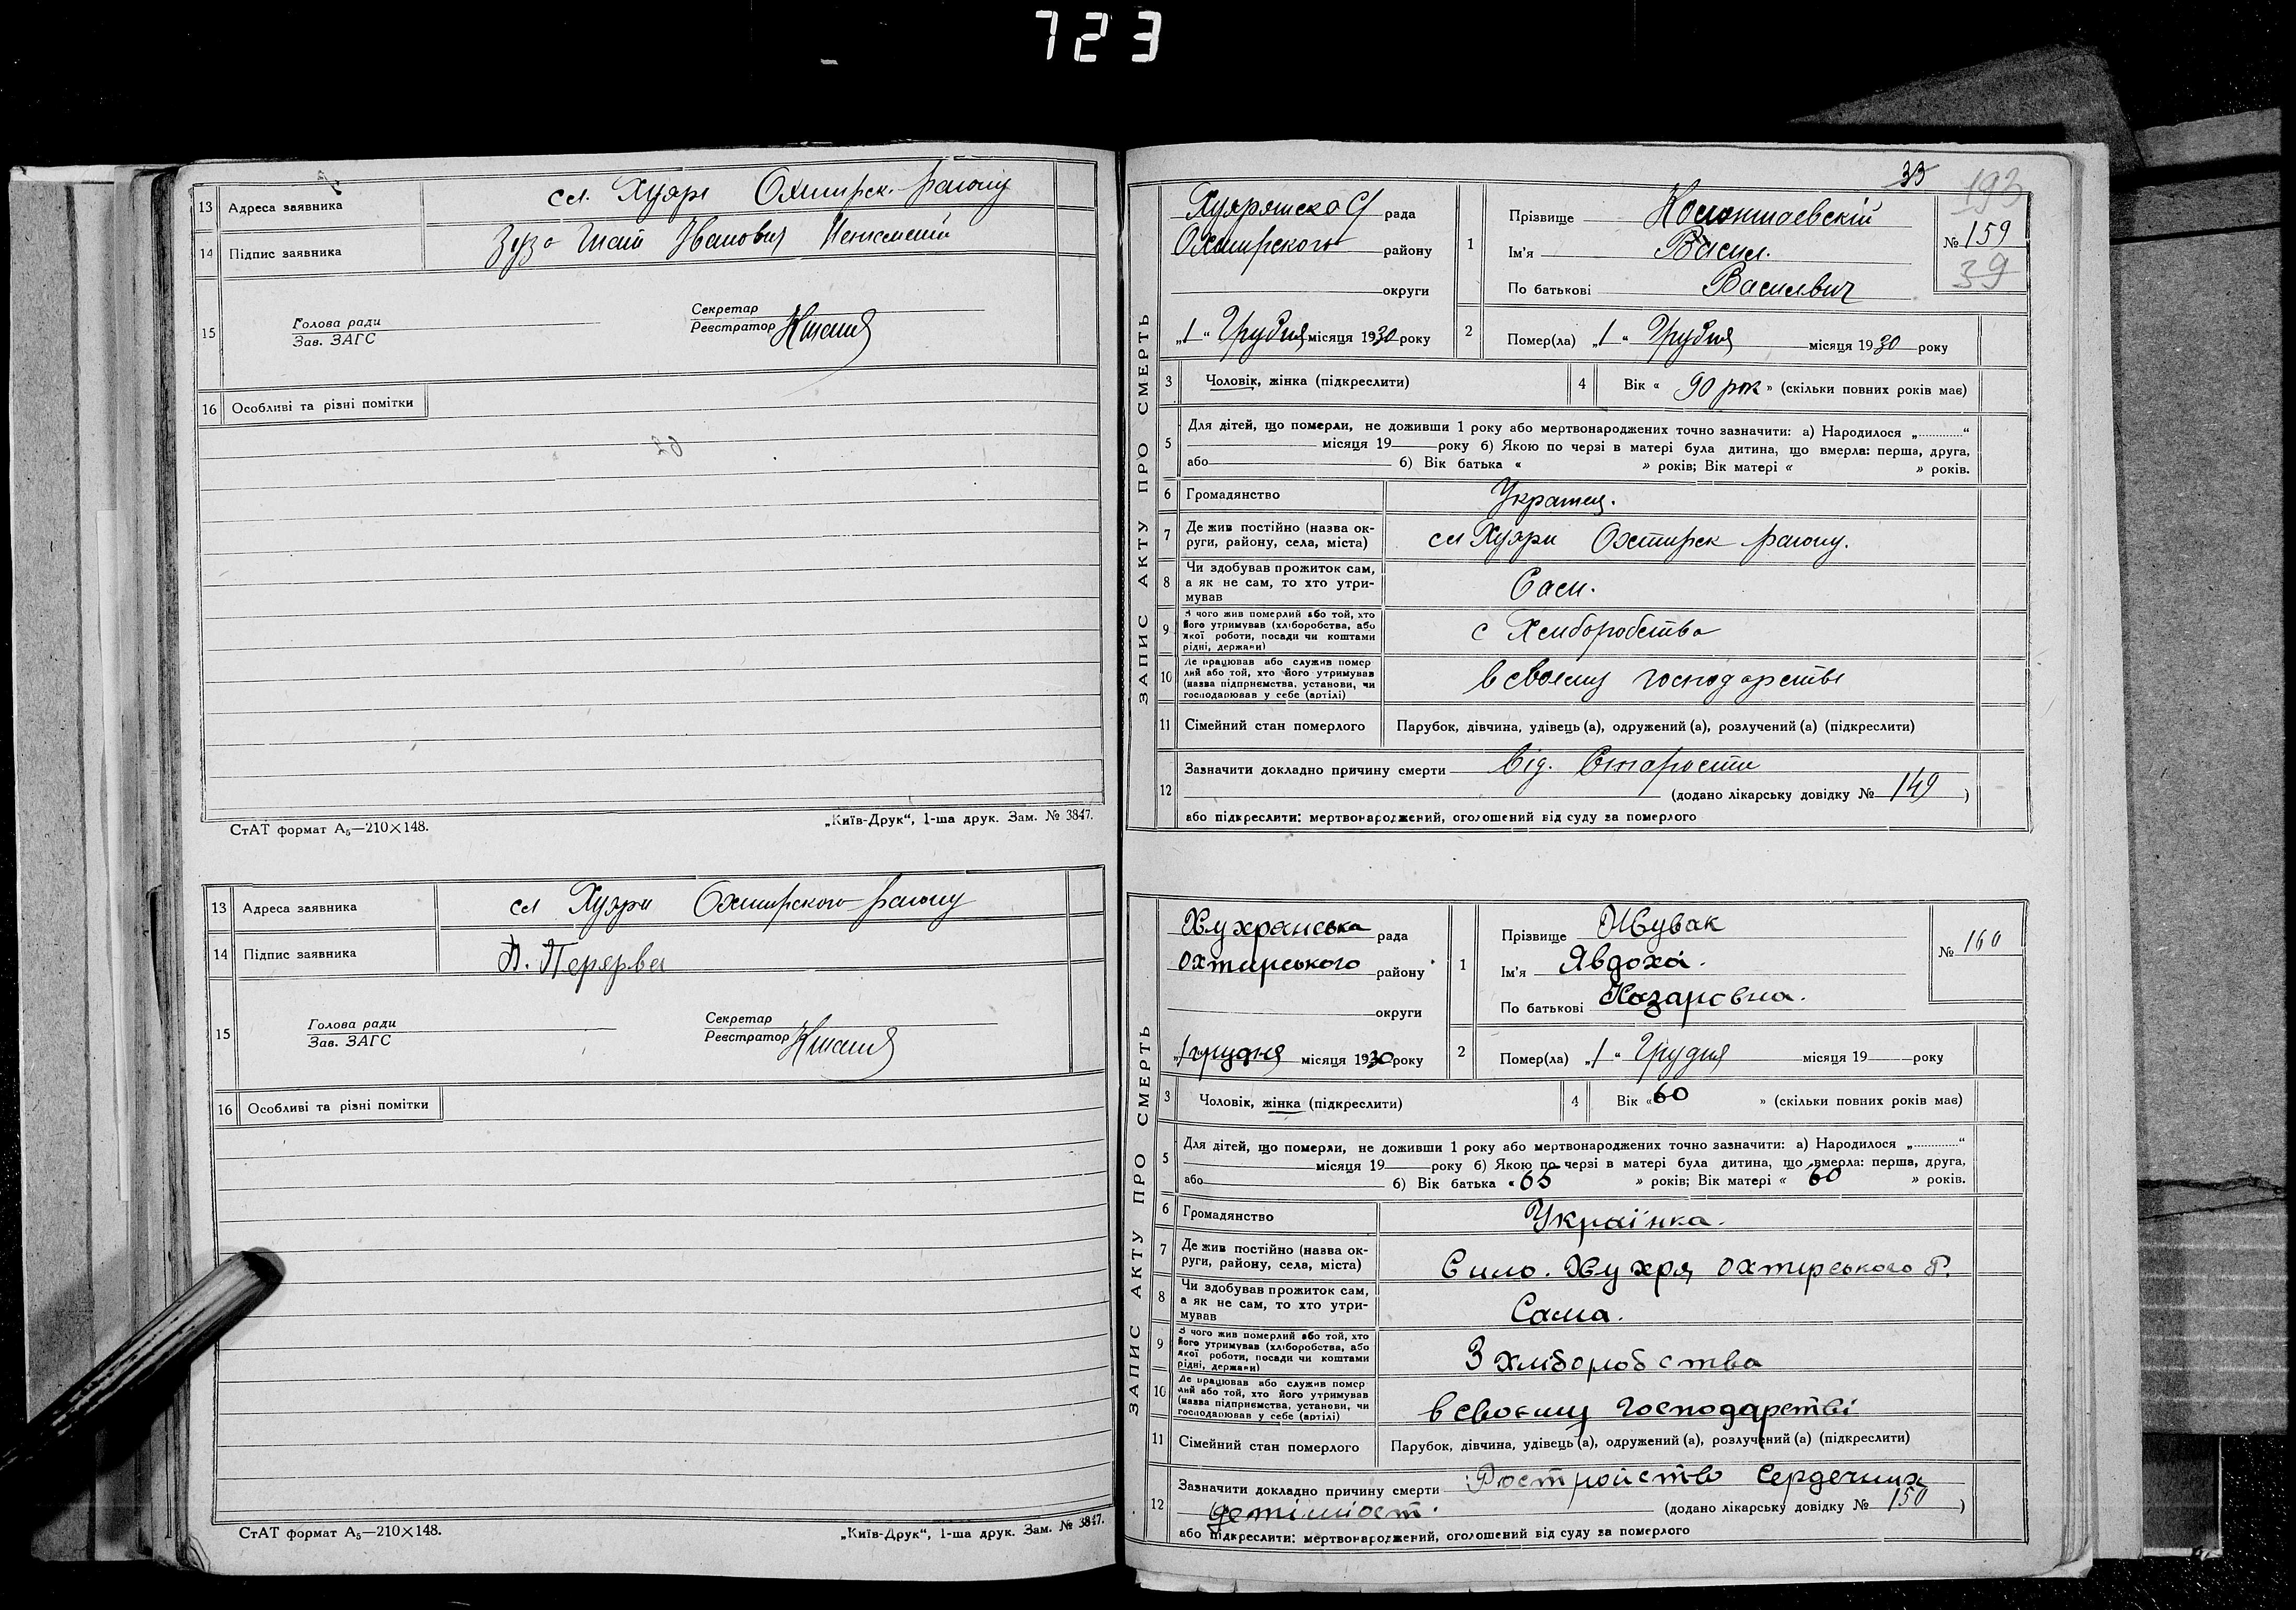 723
13 Адреса заявника сл. Хухря Охтирск. району
14 Підпис заявника Іванович
15
Голова ради
Зав. ЗАГС
Секретар
Реєстратор
16 Особливі та різні помітки
СтАТ формат А₅—210×148.
„Київ-Друк“, 1-ша друк. Зам. № 3847.
13 Адреса заявника сл Хухри Охтирского району
14 Підпис заявника П. Перерва
15
Голова ради
Зав. ЗАГС
Секретар
Реєстратор
16 Особливі та різні помітки
СтАТ формат А₅—210×148.
„Київ-Друк“, 1-ша друк. Зам. № 3847.
33
193
ЗАПИС АКТУ ПРО СМЕРТЬ
рада
Охтирского району
округи
„1“ Грудня місяця 1930 року
1 Прізвище
Ім'я Васил.
По батькові Василевич
№ 159
39
2 Помер(ла) „1“ Грудня місяця 1930 року
3 Чоловік, жінка (підкреслити)
4 Вік « 90 рок » (скільки повних років має)
5 Для дітей, що померли, не доживши 1 року або мертвонароджених точно зазначити: а) Народилося „............“
місяця 19 року б) Якою по черзі в матері була дитина, що вмерла: перша, друга,
або б) Вік батька « » років; Вік матері « » років.
6 Громадянство Украінец.
7 Де жив постійно (назва ок-
руги, району, села, міста) сл Хухри Охтирск району.
8 Чи здобував прожиток сам,
а як не сам, то хто утри-
мував Сам.
9 З чого жив померлий або той, хто
його утримував (хліборобства, або
якої роботи, посади чи коштами
рідні, держави) с Хлиборобства
10 Де працював або служив помер
лий або той, хто його утримував
(назва підприємства, установи, чи
господарював у себе (артілі) в своему господарстві
11 Сімейний стан померлого Парубок, дівчина, удівець (а), одружений (а), розлучений (а) (підкреслити)
12 Зазначити докладно причину смерти Від. Старости
(додано лікарську довідку № 149 )
або підкреслити: мертвонароджений, оголошений від суду за померлого
ЗАПИС АКТУ ПРО СМЕРТЬ
Хухранська рада
Охтирського району
округи
„1 грудня місяця 1930 року
1 Прізвище
Ім'я Явдоха.
По батькові Назаровна.
№ 160
2 Помер(ла) „1“ Грудня місяця 19 року
3 Чоловік, жінка (підкреслити)
4 Вік « 60 » (скільки повних років має)
5 Для дітей, що померли, не доживши 1 року або мертвонароджених точно зазначити: а) Народилося „............“
місяця 19 року б) Якою по черзі в матері була дитина, що вмерла: перша, друга,
або б) Вік батька « 65 » років; Вік матері « 60 » років.
6 Громадянство Українка.
7 Де жив постійно (назва ок-
руги, району, села, міста) Сило. Хухря Охтирського Р.
8 Чи здобував прожиток сам,
а як не сам, то хто утри-
мував Сама.
9 З чого жив померлий або той, хто
його утримував (хліборобства, або
якої роботи, посади чи коштами
рідні, держави) З хліборобства
10 Де працював або служив помер
лий або той, хто його утримував
(назва підприємства, установи, чи
господарював у себе (артілі) в своєму господарстві
11 Сімейний стан померлого Парубок, дівчина, удівець (а), одружений (а), розлучений (а) (підкреслити)
12 Зазначити докладно причину смерти Ростройство Сердечних
(додано лікарську довідку № 150 )
або підкреслити: мертвонароджений, оголошений від суду за померлого